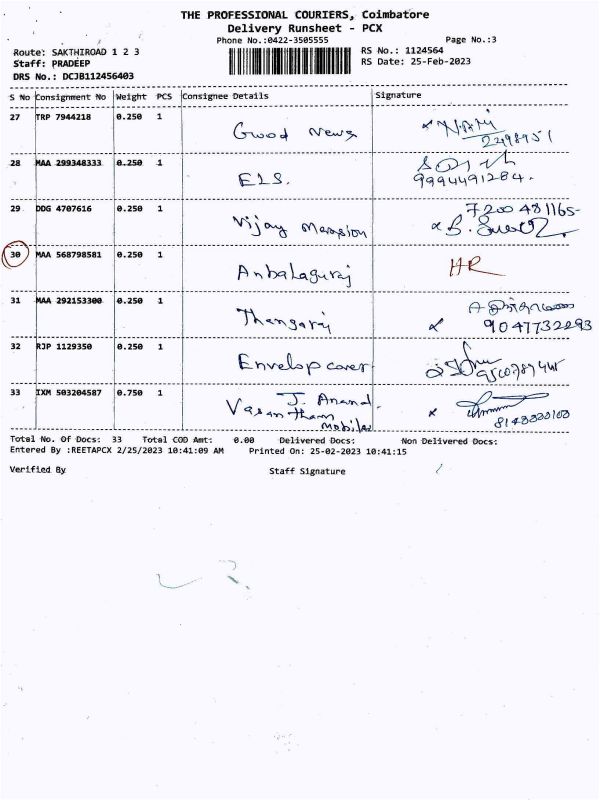 THE PROFESSIONAL COURIERS, Coimbatore
Delivery Runsheet - PCX
Phone No.:0422-3505555 Page No.:3
Route: SAKTHIROAD 1 2 3 RS No.: 1124564
Staff: PRADEEP RS Date: 25-Feb-2023
DRS No.: DCJB112456403
S No Consignment No Weight PCS Consignee Details Signature
27 TRP 7944218 0.250 1 Good News
28 MAA 299348333 0.250 1 ELS. 9994491284.
29 DDG 4707616 0.250 1 Vijay Mansion 7200481165-
30 MAA 568798581 0.250 1 Anbalaguraj HR
31 MAA 292153300 0.250 1 Thangaraj
32 RJP 1129350 0.250 1 Envelop cover
33 IXM 503204587 0.750 1 J. Anand
Vasantham
mobiles
Total No. Of Docs: 33 Total COD Amt: 0.00 Delivered Docs: Non Delivered Docs:
Entered By :REETAPCX 2/25/2023 10:41:09 AM Printed On: 25-02-2023 10:41:15
Verified By Staff Signature